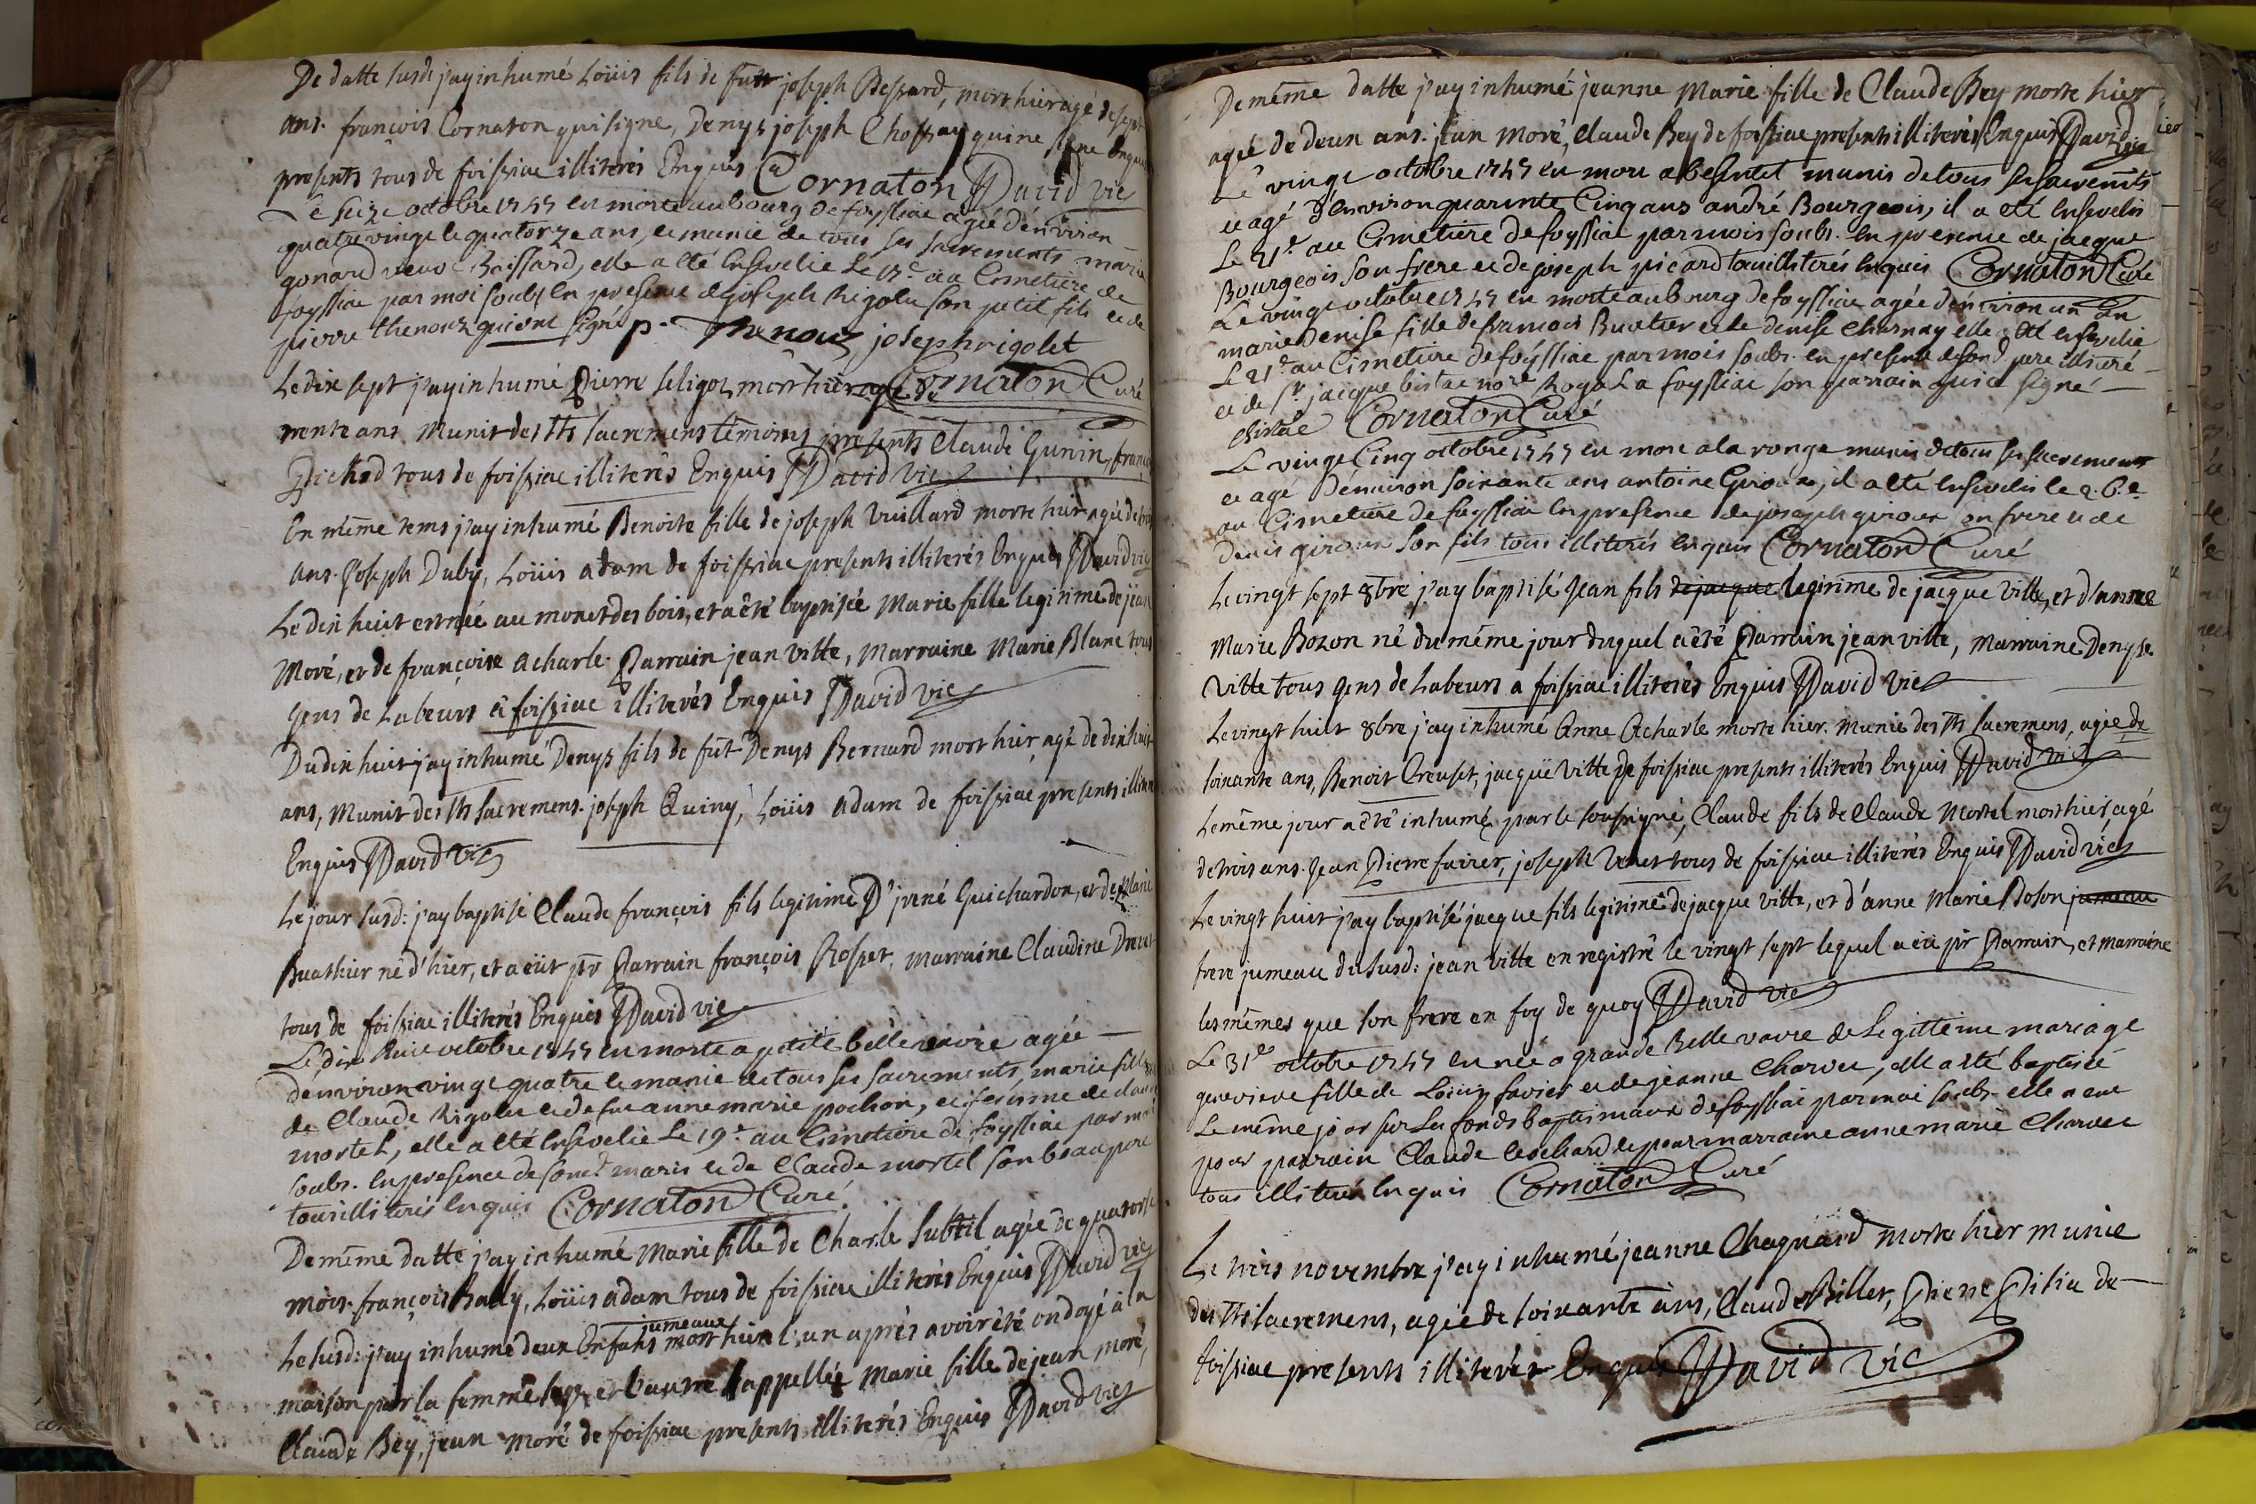 De datte susd: j'ay inhumé Loüis fils de fût joseph Bessard, mort hier agé de sept
ans. françois Cornaton qui signe, Denys joseph Chossay qui ne signe enquis
presents tous de foissiac illiterés Enquis Cornaton David vic
Le seize octobre 1747 est morte au bourg de foyssiac agée d'environ
quatre vingt le quatorze ans, et munie de tous ses sacrements marie
gonard veuve Boissard, elle a eté ensevelie Le 17e au Cimetiere de
foyssiac par moi soubs. en presence de joseph Rigolet son petit fils et de
pierre thenoux qui ont signé p. Thenoux josephrigolet
Cornaton Curé
Le dix sept j'ay inhumé Pierre seligoz mort hier agé de
trente ans Munit des Sts sacremens temoins presents Claude Gunin, franç
Pichod tous de foissiac illiterés Enquis David vic
En même tems j'ay inhumé Benoite fille de joseph Vuillard morte hier agée de
ans. Joseph Duby, Loüis adam de foissiac presents illiterés Enquis David vic
Le dix huit est née au monet des bois, et a êté baptisée Marie fille legitime de jean
Moré, et de françoise acharle. Parrain jean vitte, Marraine Marie Blanc tous
gens de Labeurs à foissiac illiterés Enquis David vic
Du dix huit j'ay inhumé Denys fils de fût Denys Bernard mort hier agé de dix huit
ans, Munit des Sts sacremens. joseph Quiny, Loüis adam de foissiac presents illiterés
Enquis David vic
Le jour susd: j'ay baptisé Claude françois fils legitime D'jrené Guichardon, et de Marie
Buathier né d'hier, et a eüt pr Parrain françois Rosset, marraine Claudine Drevet
tous de foissiac illiterés Enquis David vic
Le dix huit octobre 1747 est morte a petite bellevavre agée
d'environ vingt quatre et munie de tous ses sacrements, marie fille
de Claude Rigolet et de fue anne marie pochon, et femme de claude
mortel, elle a eté ensevelie Le 19e au Cimetiere de foyssiac par moi
soubs. en presence de son d. maris et de Claude mortel son beaupere
tous illiterés enquis Cornaton Curé
De même datte j'ay inhumé Marie fille de Charle Subtil agée de quatorse
mois. françois Bally, Loüis adam tous de foissiac illiterés Enquis David vic
Le susd: j'ay inhumé deux Enfans jumeaux mort hier l'un après avoir êté ondoyé à la
maison par la femme sage et l'autre appellée Marie fille de jean moré,
Claude Bey, jean moré de foissiac presents illiterés Enquis David vic
De même datte j'ay inhumé jeanne Marie fille de Claude Bey morte hier
agée de deux ans. jean Moré, Claude Bey de foissiac presents illiterés Enquis David vic
Le vingt octobre 1747 est mort a besentet munis de tous ses sacrements
et agé d'environ quarente Cinq ans andré Bourgeois, il a eté ensevelis
Le 21e au Cimetiere de foyssiac par mois soubs. en presence de jacque
Bourgeois son frere et de joseph picard tous illiterés enquis Cornaton Curé
Le vingt octobre 1747 est morte au bourg de foyssiac agée d'environ un an
marie Denise fille de francois Buatier et de denise Charnay elle a eté ensevelie
Le 21e au Cimetiere de foyssiac par mois soubs. en presence de son d. pere illiteré
et de Sr. jacque bistac nore Royal a foyssiac son parrain qui a signé
Bistac Cornaton Curé
Le vingt Cinq octobre 1747 est mort a la ronge munis de tous ses sacrements
et agé d'environ soixante ans antoine Giroux, il a eté ensevelis le 26e
au Cimetiere de foyssiac en presence de joseph giroux son frere et de
denis giroux son fils tous illiterés enquis Cornaton Curé
Le vingt sept 8bre j'ay baptisé Jean fils de jacque legitime de jacque Vitte, et d'anne
Marie Bozon né du même jour duquel a êté Parrain jean vitte, Marraine Denyse
Vitte tous gens de Labeurs a foissiac illiterés Enquis David Vic
Le vingt huit 8bre j'ay inhumé Anne Acharle morte hier. Munie des Sts sacremens, agée de
soixante ans, Benoit Creuset, jacque Vitte de foissiac presents illiterés Enquis David vic
Le même jour a êté inhumé par le soussigné, Claude fils de Claude Mortel mort hier agé
de trois ans. Jean Pierre favier, joseph Venet tous de foissiac illiterés Enquis David vic
Le vingt huit j'ay baptisé jacque fils legitime de jacque vitte, et d'anne Marie Boson jumeau
frere jumeau du susd: jean vitte enregistré le vingt sept lequel a eü pr Parrain, et marraine
les mêmes que son frere en foy de quoy David vic
Le 31e octobre 1747 est née a grande Bellevavre de Legitteime mariage
genevieve fille de Loüis favier et de jeanne Charvet, elle a eté baptisée
Le même jour sur Les fonds baptismaux de foyssiac par moi soubs. elle a eut
pour parrain Claude et pour marraine anne marie Charvet
tous illiterés enquis Cornaton Curé
Le trois novembre j'ay inhumé jeanne Chagnard morte hier munie
des Sts sacremens, agée de soixante ans, Claude Billet, Pierre Pitiu de
foissiac presents illiterés Enquis David vic